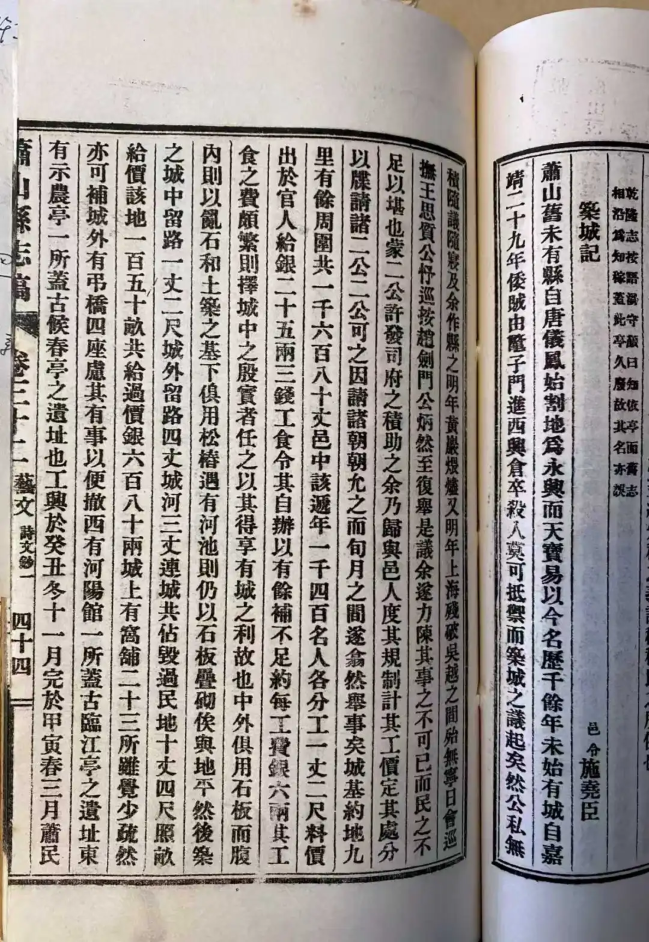 乾隆志按語湯守顏曰知依亭而舊志
相沿爲知稼蓋此亭久廢故其名亦誤
築城記
邑令施堯臣
蕭山舊未有縣自唐儀鳳始割地爲永興而天寶易以今名歷千餘年未始有城自嘉
靖二十九年倭賊由鼈子門進西興倉卒殺人莫可抵禦而築城之議起矣然公私無
積隨議隨寢及余作縣之明年黃巖煨燼又明年上海殘破吳越之間殆無寧日會巡
撫王思質公忬巡按趙劍門公炳然至復舉是議余遂力陳其事之不可已而民之不
足以堪也蒙二公許發司府之積助之余乃歸與邑人度其規制計其工價定其處分
以牒請諸二公二公可之因請諸朝朝允之而旬月之間遂翕然舉事矣城基約地九
里有餘周圍共一千六百八十丈邑中該遞年一千四百名人各分工一丈二尺料價
出於官人給銀二十五兩三錢工食令其自辦以有餘補不足約每工費銀六兩其工
食之費頗繁則擇城中之殷實者任之以其得享有城之利故也中外俱用石板而腹
內則以亂石和土築之基下俱用松樁遇有河池則仍以石板疊砌俟與地平然後築
之城中留路一丈二尺城外留路四丈城河三丈連城共佔毀過民地十丈四尺照畝
給價該地一百五十畝共給過價銀六百八十兩城上有窩舖二十三所雖覺少疏然
亦可補城外有弔橋四座慮其有事以便撤西有河陽館一所蓋古臨江亭之遺址東
有示農亭一所蓋古候春亭之遺址也工興於癸丑冬十一月完於甲寅春三月蕭民
蕭山縣志稿 卷三十二 藝文 詩文鈔一 四十四